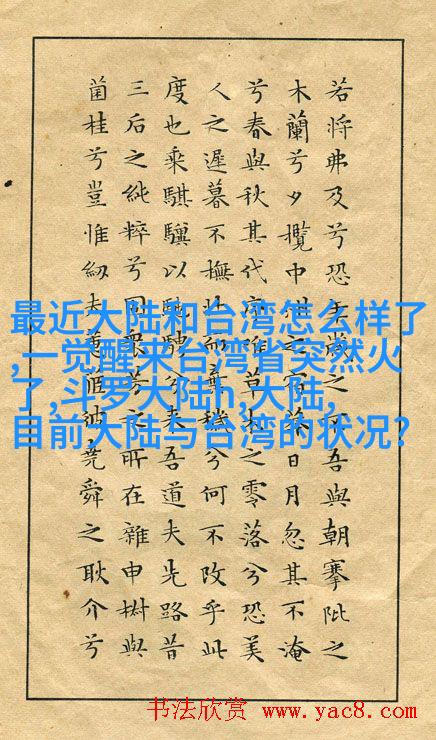 若將弗及兮恐歲之吾與朝搴阰之
木蘭兮夕攬中之日月忽其不淹
兮春與秋其代草之零落兮恐美
人之遲暮不撫棄穢兮何不改乎此
度也乘騏驥以馳騁兮来吾道夫先路昔
三后之純粹兮固衆芳之所在雜申椒與
菌桂兮豈惟紉夫蕙堯舜之耿介兮
最近大陆和台湾怎么样了
,一觉醒来台湾省突然火
了,斗罗大陆h,大陆,
目前大陆与台湾的状况?
书法欣赏 www.yac8.com